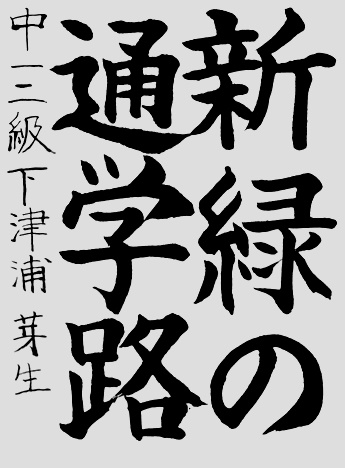 新緑の
通学路
中一二級下津浦芽生